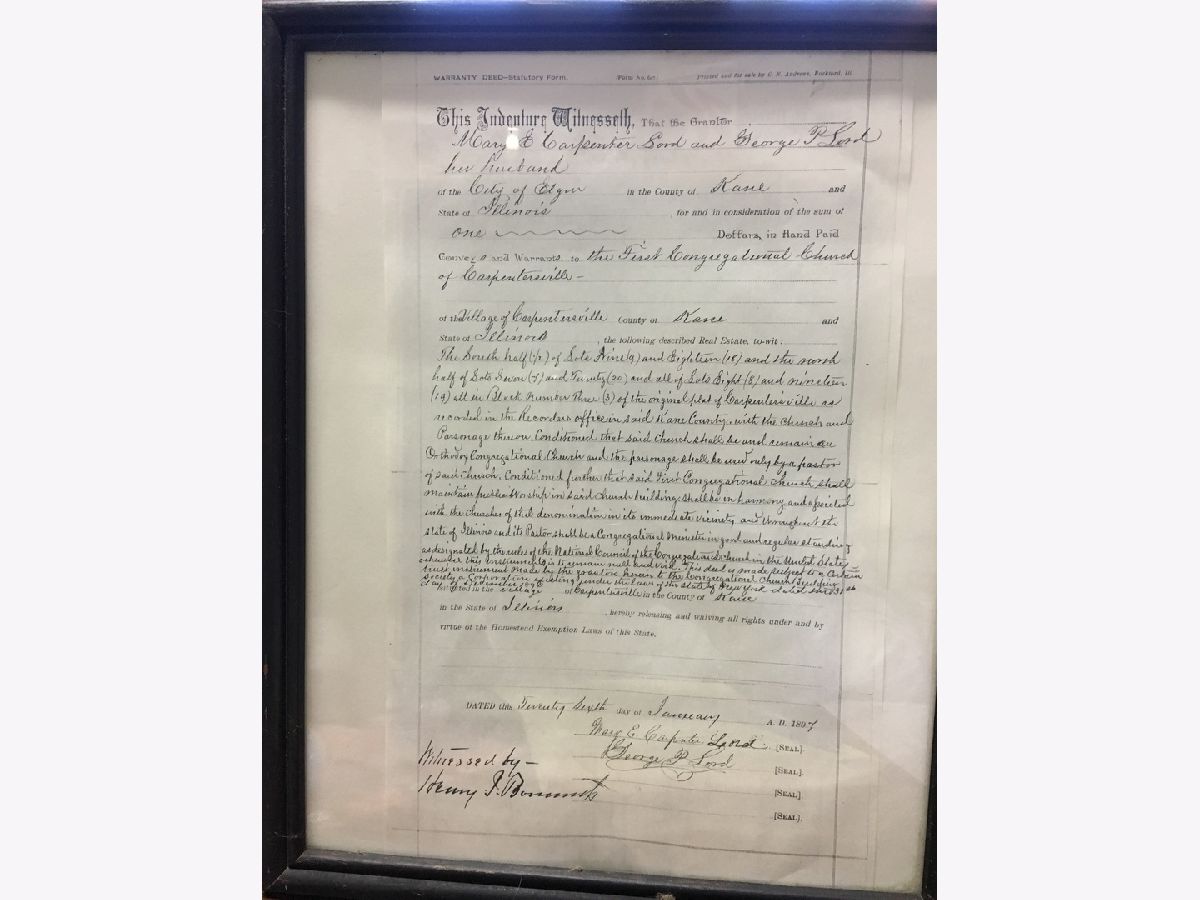 WARRANTY DEED—Statutory Form. Form No. Printed and for sale by C. H. Andrews, Rockford, Ill
This Indenture Witnesseth, That the Grantor
Mary E Carpenter Lord and George P Lord
her husband
of the City of Elgin in the County of Kane and
State of Illinois for and in consideration of the sum of
one Dollars, in Hand Paid
Conveys and Warrants to the First Congregational Church
of Carpentersville –
of the Village of Carpentersville County of Kane and
State of Illinois, the following described Real Estate, to-wit:
The South half (1/2) of Lots Nine (9) and Eighteen (18) and the north
half of Lots Seven (7) and Twenty (20) and all of Lots Eight (8) and nineteen
(19) all in Block number Three (3) of the original plat of Carpentersville as
recorded in the Recorders office in said Kane County, with the Church and
Parsonage thereon Conditioned that said Church shall be and remain an
Orthodox Congregational Church and the parsonage shall be used only by a pastor
of said Church. Conditioned further that said First Congregational Church shall
maintain public Worship in said Church building: shall be in harmony and affiliated
with the Churches of that denomination in its immediate vicinity and throughout the
State of Illinois and its Pastor shall be a Congregational Minister in good and regular standing
as designated by the rules of the National Council of the Congregational Church in the United States
otherwise this instrument is to remain null and void. This deed is made subject to a certain
instrument made by the grantors herein to the Congregational Church Building
Society a Corporation existing under the laws of the State of New York dated the 31st
day of
situated in the Village of Carpentersville in the County of Kane
in the State of Illinois, hereby releasing and waiving all rights under and by
virtue of the Homestead Exemption Laws of this State.
DATED this Twenty sixth day of January A. D. 1897
Mary E Carpenter Lord [SEAL]
George P. Lord [SEAL]
Witnessed by – [SEAL]
Henry [SEAL]